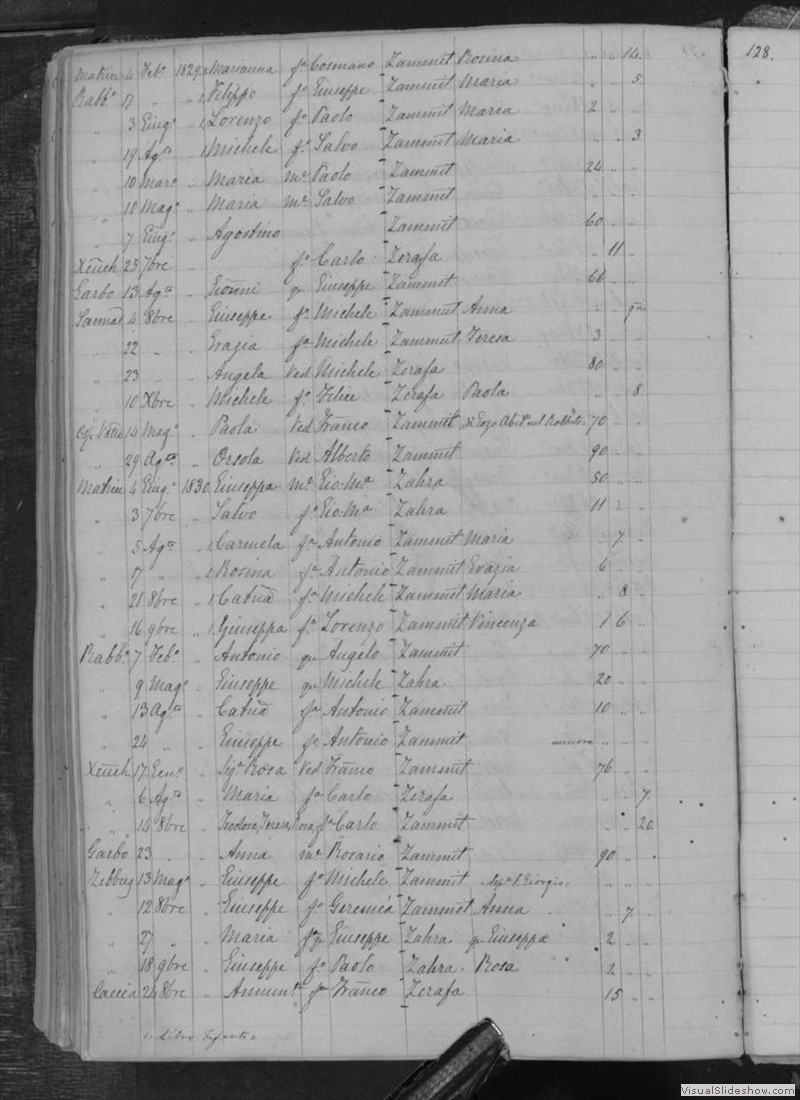 128.
Matrice 4 Feb.º 1829 Marianna fª Cosmano Zammit Rosina " " 14
Rabb.º 17 " " 1 Filippo fº Giuseppe Zammit Maria " " 5
" 3 Giug.º 1 Lorenzo fº Paolo Zammit Maria 2 " "
" 19 Ag.to 1 Michele fº Salvo Zammit Maria " " 3
" 10 Mar.º " Maria mª Paolo Zammit 24 " "
" 10 Mag.º " Maria mª Salvo Zammit " " "
" 7 Giug.º " Agostino Zammit 60 " "
Xeuch 25 7bre " fº Carlo Zerafa " 11 "
Garbo 13 Ag.to " Gioñni qº Giuseppe Zammit 66 " "
Sannat 4 8bre " Giuseppe fº Michele Zammit Anna " "
" 22 " " Grazia fª Michele Zammit Teresa 3 " "
" 23 " " Angela Ved Michele Zerafa 80 " "
" 10 Xbre " Michele fº Felice Zerafa Paola " " 8
14 Mag.º " Paola Ved Franco Zammit 70 " "
" 29 Ag.to " Orsola Ved Alberto Zammit 90 " "
Matrice 4 Giug.º 1830 Giuseppa mª Gio Mª Zahra 50 " "
" 3 7bre " Salvo fº Gio Mª Zahra 11 2 "
" 5 Ag.to 1 Carmela fª Antonio Zammit Maria " 7 "
" 7 " 1 Rosina fª Antonio Zammit Grazia 6 " "
" 21 8bre 1 Catña fª Michele Zammit Maria " 8 "
" 16 9bre 1 Giuseppa fª Lorenzo Zammit Vincenza 1 6 "
Rabb.º 7 Feb.º " Antonio qº Angelo Zammit 70 " "
" 9 Mag.º " Giuseppe qº Michele Zahra 20 " "
" 13 Ag.to " Catña fª Antonio Zammit 10 " "
" 24 " " Giuseppe fº Antonio Zammit minore " "
Xeuch 17 Gen.º " Sigª Rosa Ved Franco Zammit 76 " "
" 6 Ag.to " Maria fª Carlo Zerafa " " 7
" 14 8bre " Teodora, Teresa, Rosa, fª Carlo Zammit " " 20
Garbo 23 " " Anna mª Rosario Zammit 90 " "
Zebbug 13 Mag.º " Giuseppe fº Michele Zammit " " "
" 12 8bre " Giuseppe fº Geremia Zammit Anna " 7 "
" 27 " " Maria Giuseppe Zahra qº Giuseppa 2 " "
" 18 9bre " Giuseppe fº Paolo Zahra Rosa 2 " "
Caccia 24 8bre " Annunt.ª Franco Zerafa 15 " "
1. Libro
VisualSlideshow.com